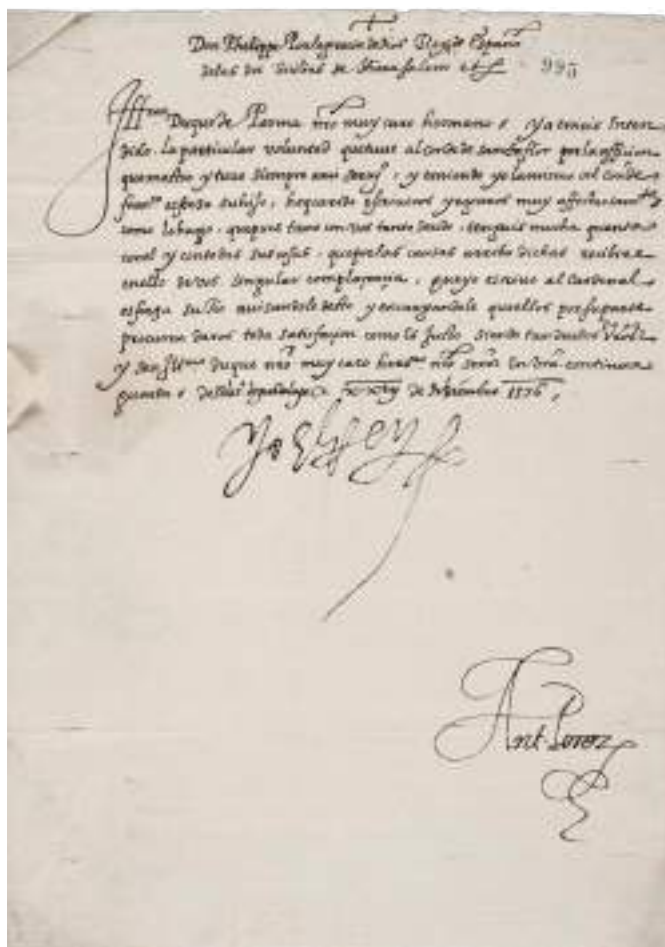 Don Philippe Por la gracia de dios Rey de España
delas dos Sicilias de Hierusalem etc. 995
Ill.mo Duque de Parma nro muy caro hermano Ya teneis Inten
dido la particular voluntad que tuve al conde de Santaflor por la afficion
que mostro y tuvo siempre a mi servy.o, y teniendo yo la misma al conde
fran.co esforza su hijo, he querido y muy affectuosam.te
como lo hago, que pues tiene con vos tanto deudo, tengais mucha quenta
con el y con todas sus cosas, que por las causas arriba dichas recibire
en ello de vos singular complazençia, que yo escrivo al Cardenal
esforça su tio avisandole desto y encargandole que ellos por su parte
procuren daros toda satisfaçion como es Justo siendo tan
y sea Ill.mo duque nro muy caro herm.o nro señor en vra continua
guarda de Noviembre 1576
Yo el Rey
Ant. Perez